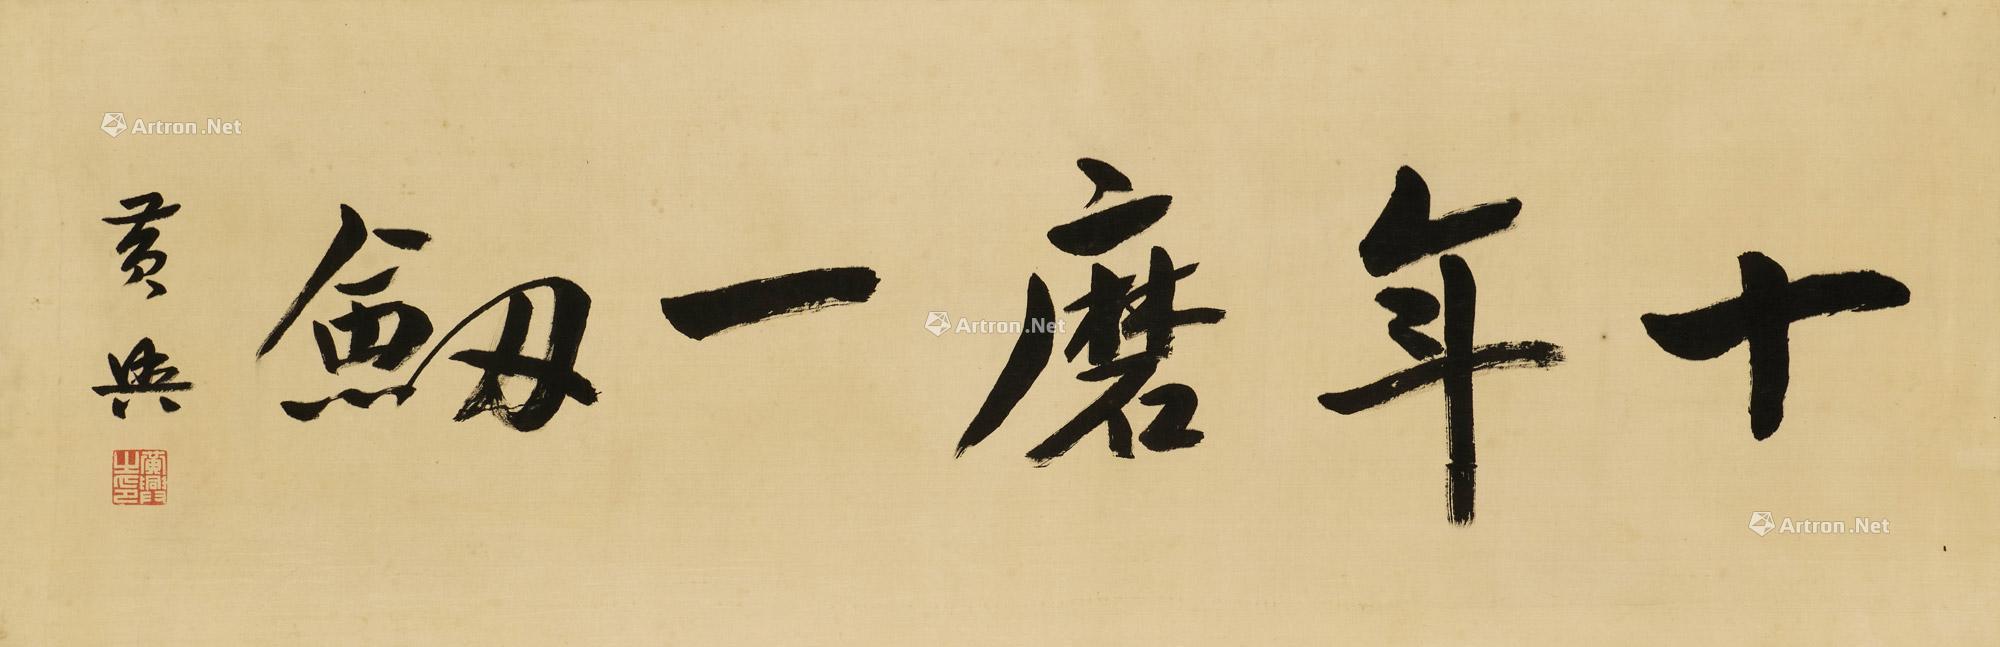 十年磨一劔
黃興
Artron.Net
Artron.Net
Artron.Net